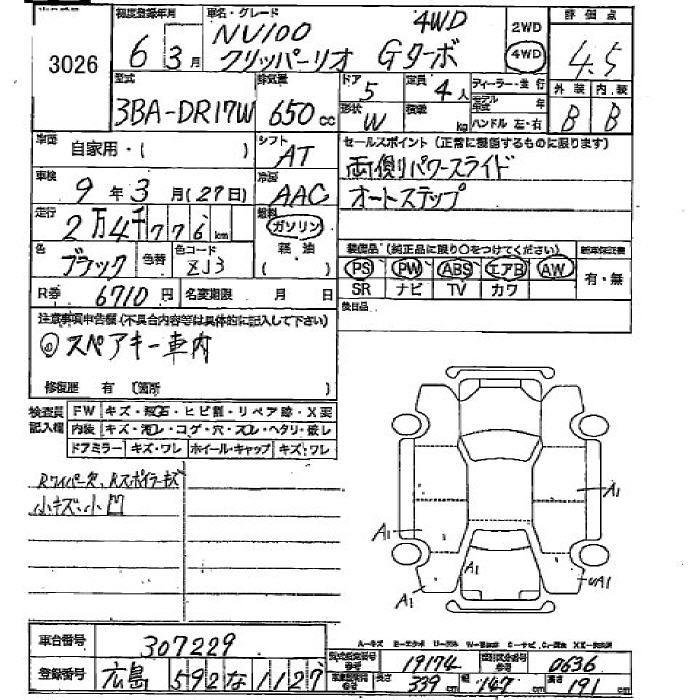 3026
初度登録年月
6年 3月
車名・グレード
NV100 4WD
クリッパーリオ Gターボ
2WD
4WD
評価点
4.5
型式
3BA-DR17W
排気量
650 cc
ドア
5
定員
4人
形状
W
積載
kg
ディーラー・並行
モデル年式 年
ハンドル 左・右
外装
内装
B
B
車歴
自家用・( )
シフト
AT
セールスポイント (正常に機能するものに限ります)
両側パワースライド
オートステップ
車検
9年 3月 (27日)
冷房
AAC
走行
2万4千776 km
燃料
ガソリン
軽油
( )
色
ブラック
色替
色コード
ZJ3
装備品 (純正品に限り○をつけてください)
PS PW ABS エアB AW
SR ナビ TV カワ
新車保証書
有・無
R券
6710円
名変期限 月 日
後日品
注意事項申告欄 (不具合内容等は具体的に記入して下さい)
◎スペアキー車内
修復歴 有 〔箇所 〕
検査員記入欄
FW キズ・飛石・ヒビ割・リペア跡・X要
内装 キズ・汚レ・コゲ・穴・スレ・ヘタリ・破レ
ドアミラー キズ・ワレ ホイール・キャップ キズ・ワレ
Rワイパー欠、Rスポイラーキズ
小キズ、小凹
A1
A1
A1
A1
UA1
車台番号
307229
登録番号
広島 592 な 1127
型式指定番号
参考
19174
類別区分番号
参考
0636
長さ
339 cm
幅
147 cm
高さ
191 cm